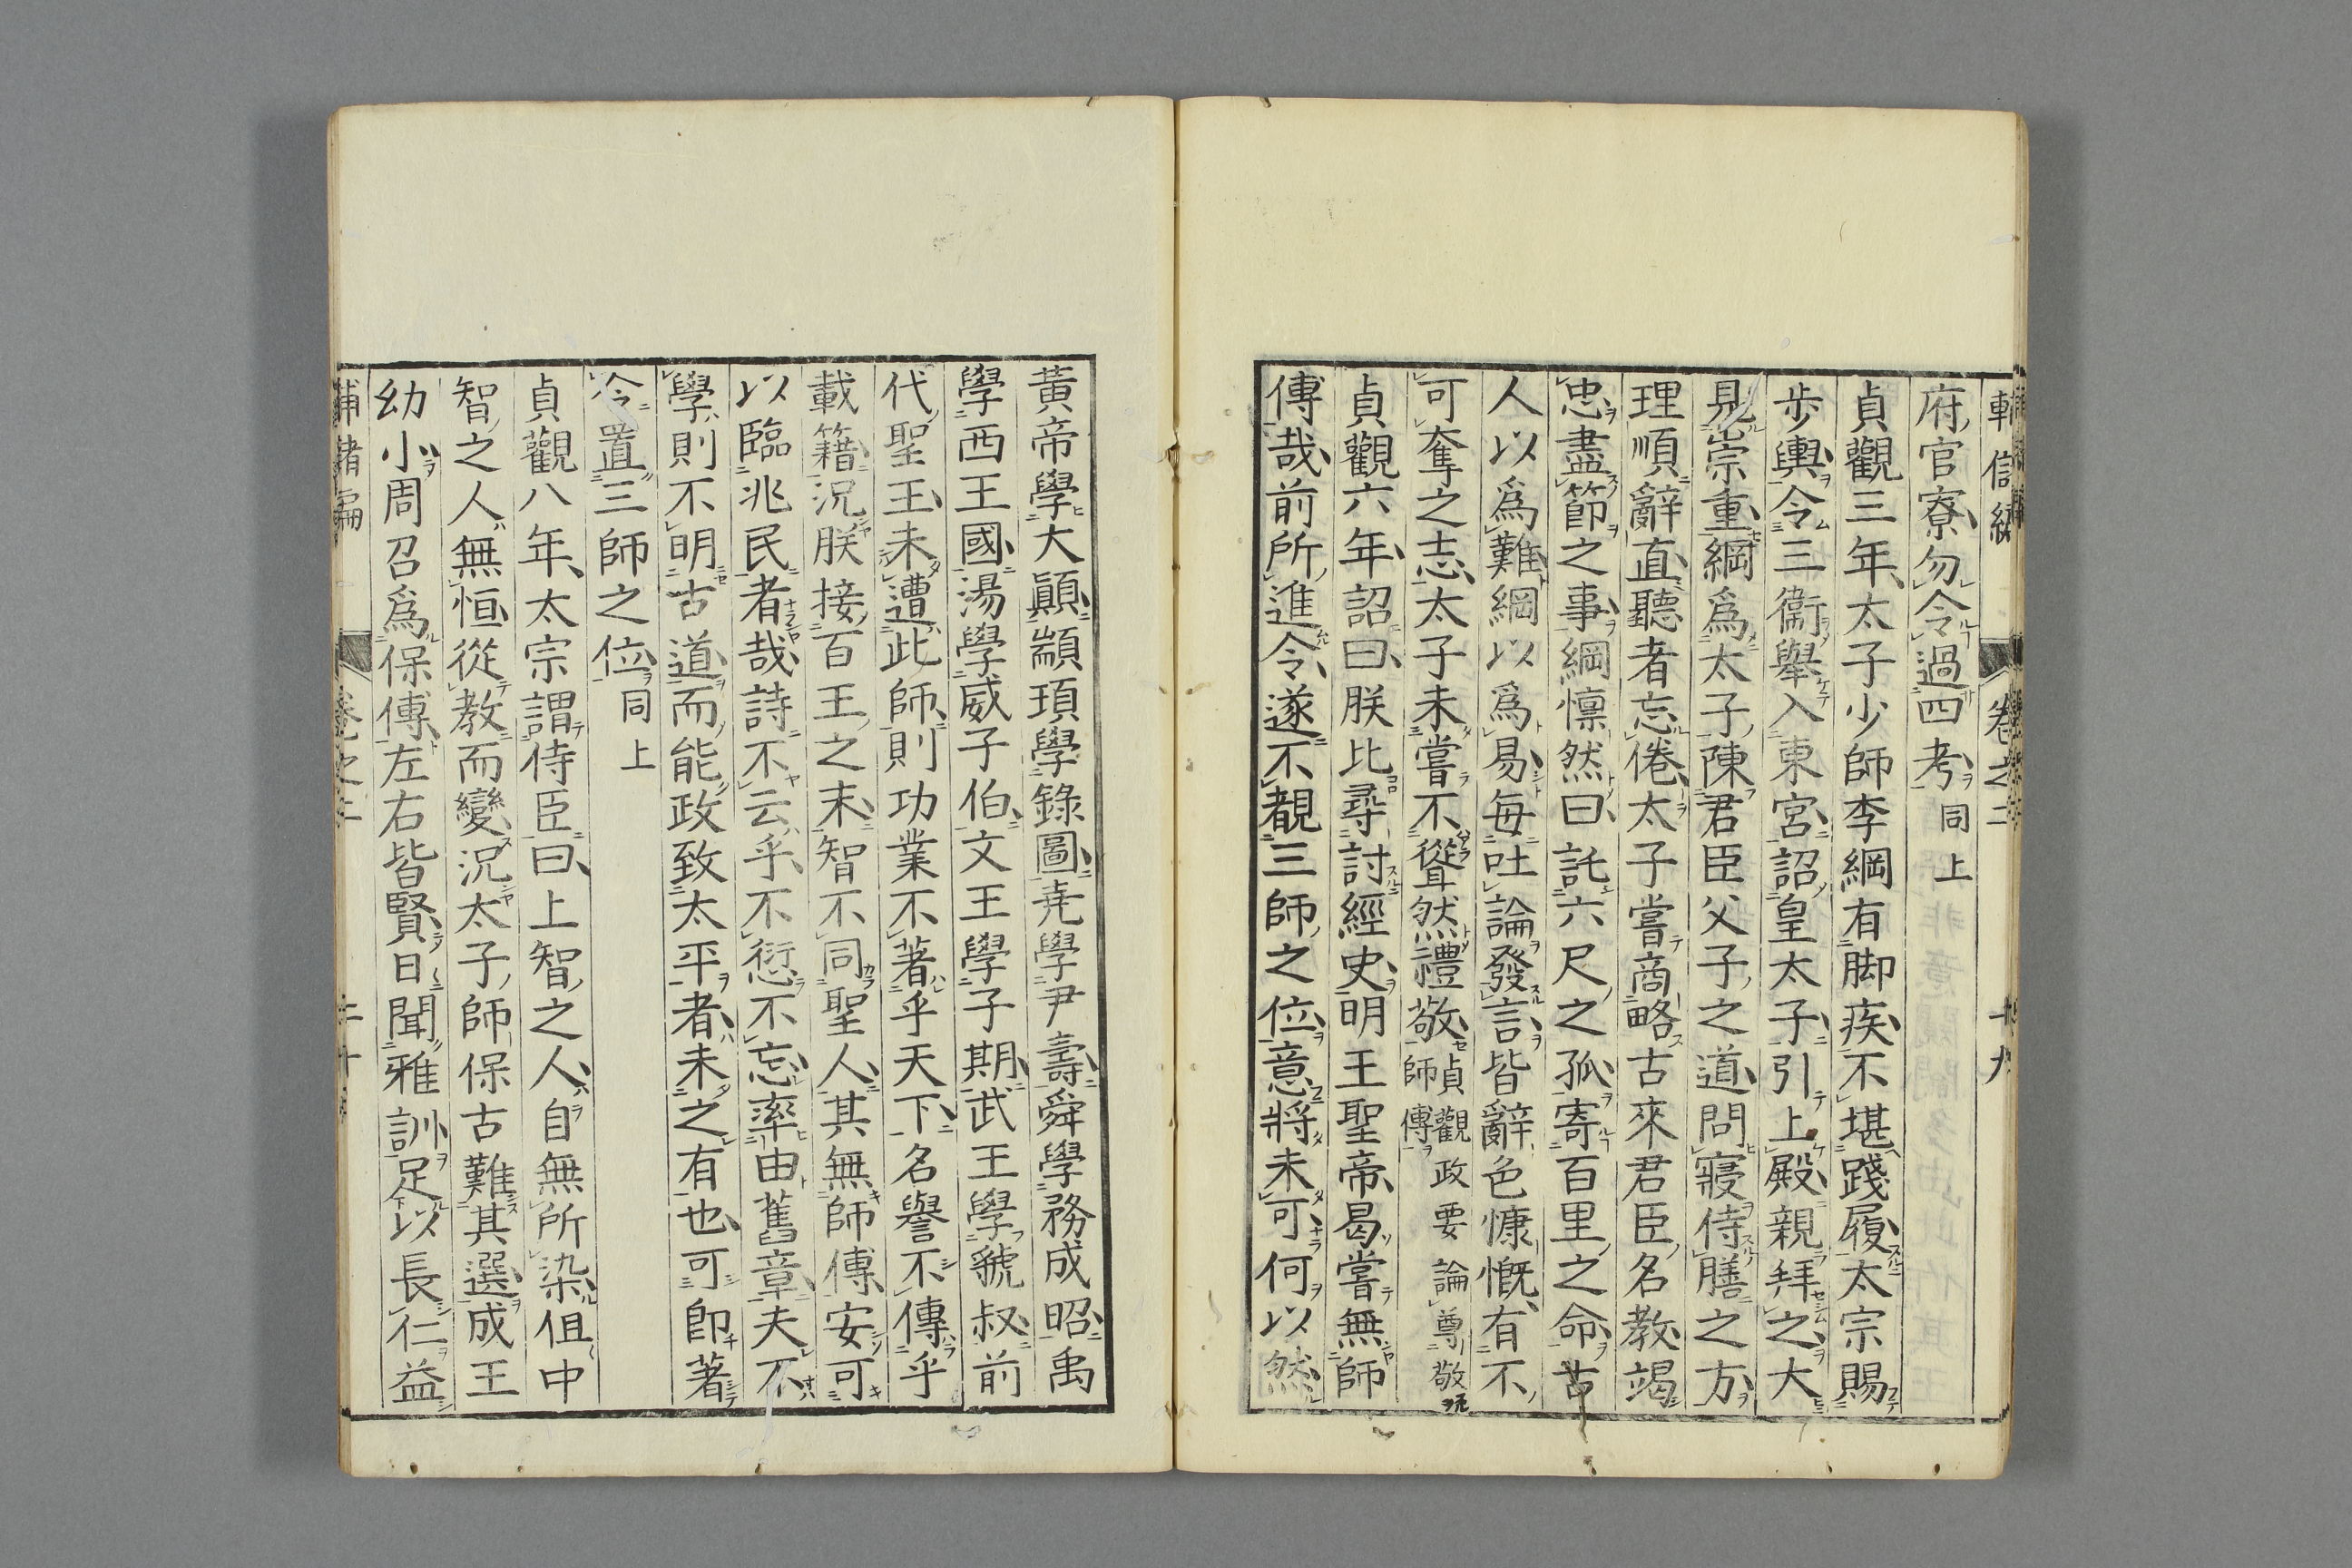 府官寮勿令過四考同上
貞觀三年太子少師李綱有脚疾不堪踐履太宗賜
歩輿令三衞舉入東宮詔皇太子引上殿親拜之大
見崇重綱爲太子陳君臣父子之道問寢侍膳之方
理順辭直聽者忘倦太子嘗商略古來君臣名教竭
忠盡節之事綱懍然曰託六尺之孤寄百里之命古
人以爲難綱以爲易毎吐論發言皆辭色慷慨有不
可奪之志太子未嘗不聳然禮敬貞觀政要論尊敬師傳
貞觀六年詔曰朕比尋討經史明王聖帝曷嘗無師
傅哉前所進令遂不覩三師之位意將未可何以然
黃帝學大顚顓頊學錄圖堯學尹壽舜學務成昭禹
學西王國湯學威子伯文王學子期武王學虢叔前
代聖王未遭此師則功業不著乎天下名譽不傳乎
載籍况朕接百王之末智不同聖人其無師傅安可
以臨兆民者哉詩不云乎不愆不忘率由舊章夫不
學則不明古道而能政致太平者未之有也可即著
令置三師之位同上
貞觀八年太宗謂侍臣曰上智之人自無所染但中
智之人無恒從教而變况太子師保古難其選成王
幼小周召爲保傅左右皆賢日聞雅訓足以長仁益